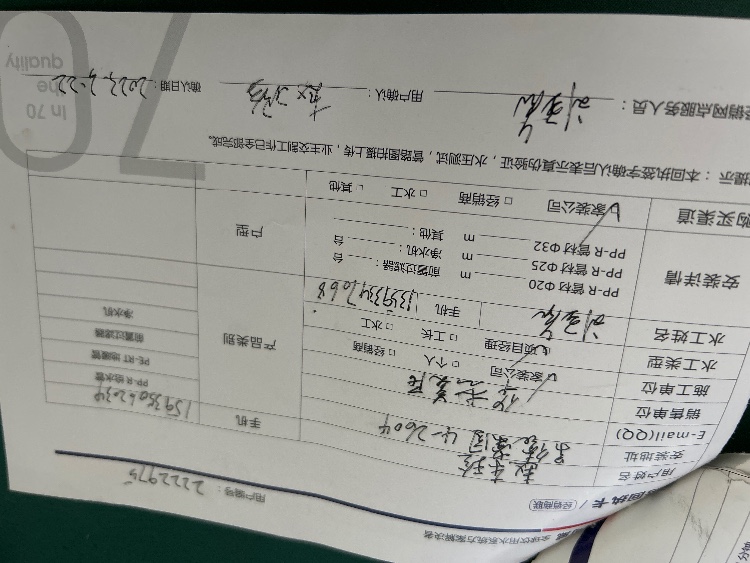 全球饮用水系统方案解决者
回执卡 / (经销商联)
用户编号： 2222975
用户姓名
安装地址 4-2604
E-mail(QQ) 手机 15935062034
销售单位
施工单位
水工类型 家装公司 □ 个人 □ 经销商
项目经理 □ 工长 □ 水工
水工姓名 手机 13593347068
产品类别 PP-R 给水管
PE-RT 地暖管
前置过滤器
净水机
安装详情 PP-R 管材 Φ20 m 前置过滤器： 台
PP-R 管材 Φ25 m 净水机： 台
PP-R 管材 Φ32 m 其他：
户型
购买渠道 家装公司 □ 经销商 □ 水工 □ 其他
提示：本回执签字确认后表示真伪验证，水压测试，管路图拍摄上传，业主交割工作全部完成。
经销网点服务人员： 用户确认： 确认日期： 2022.2.22
In 70
quality
70